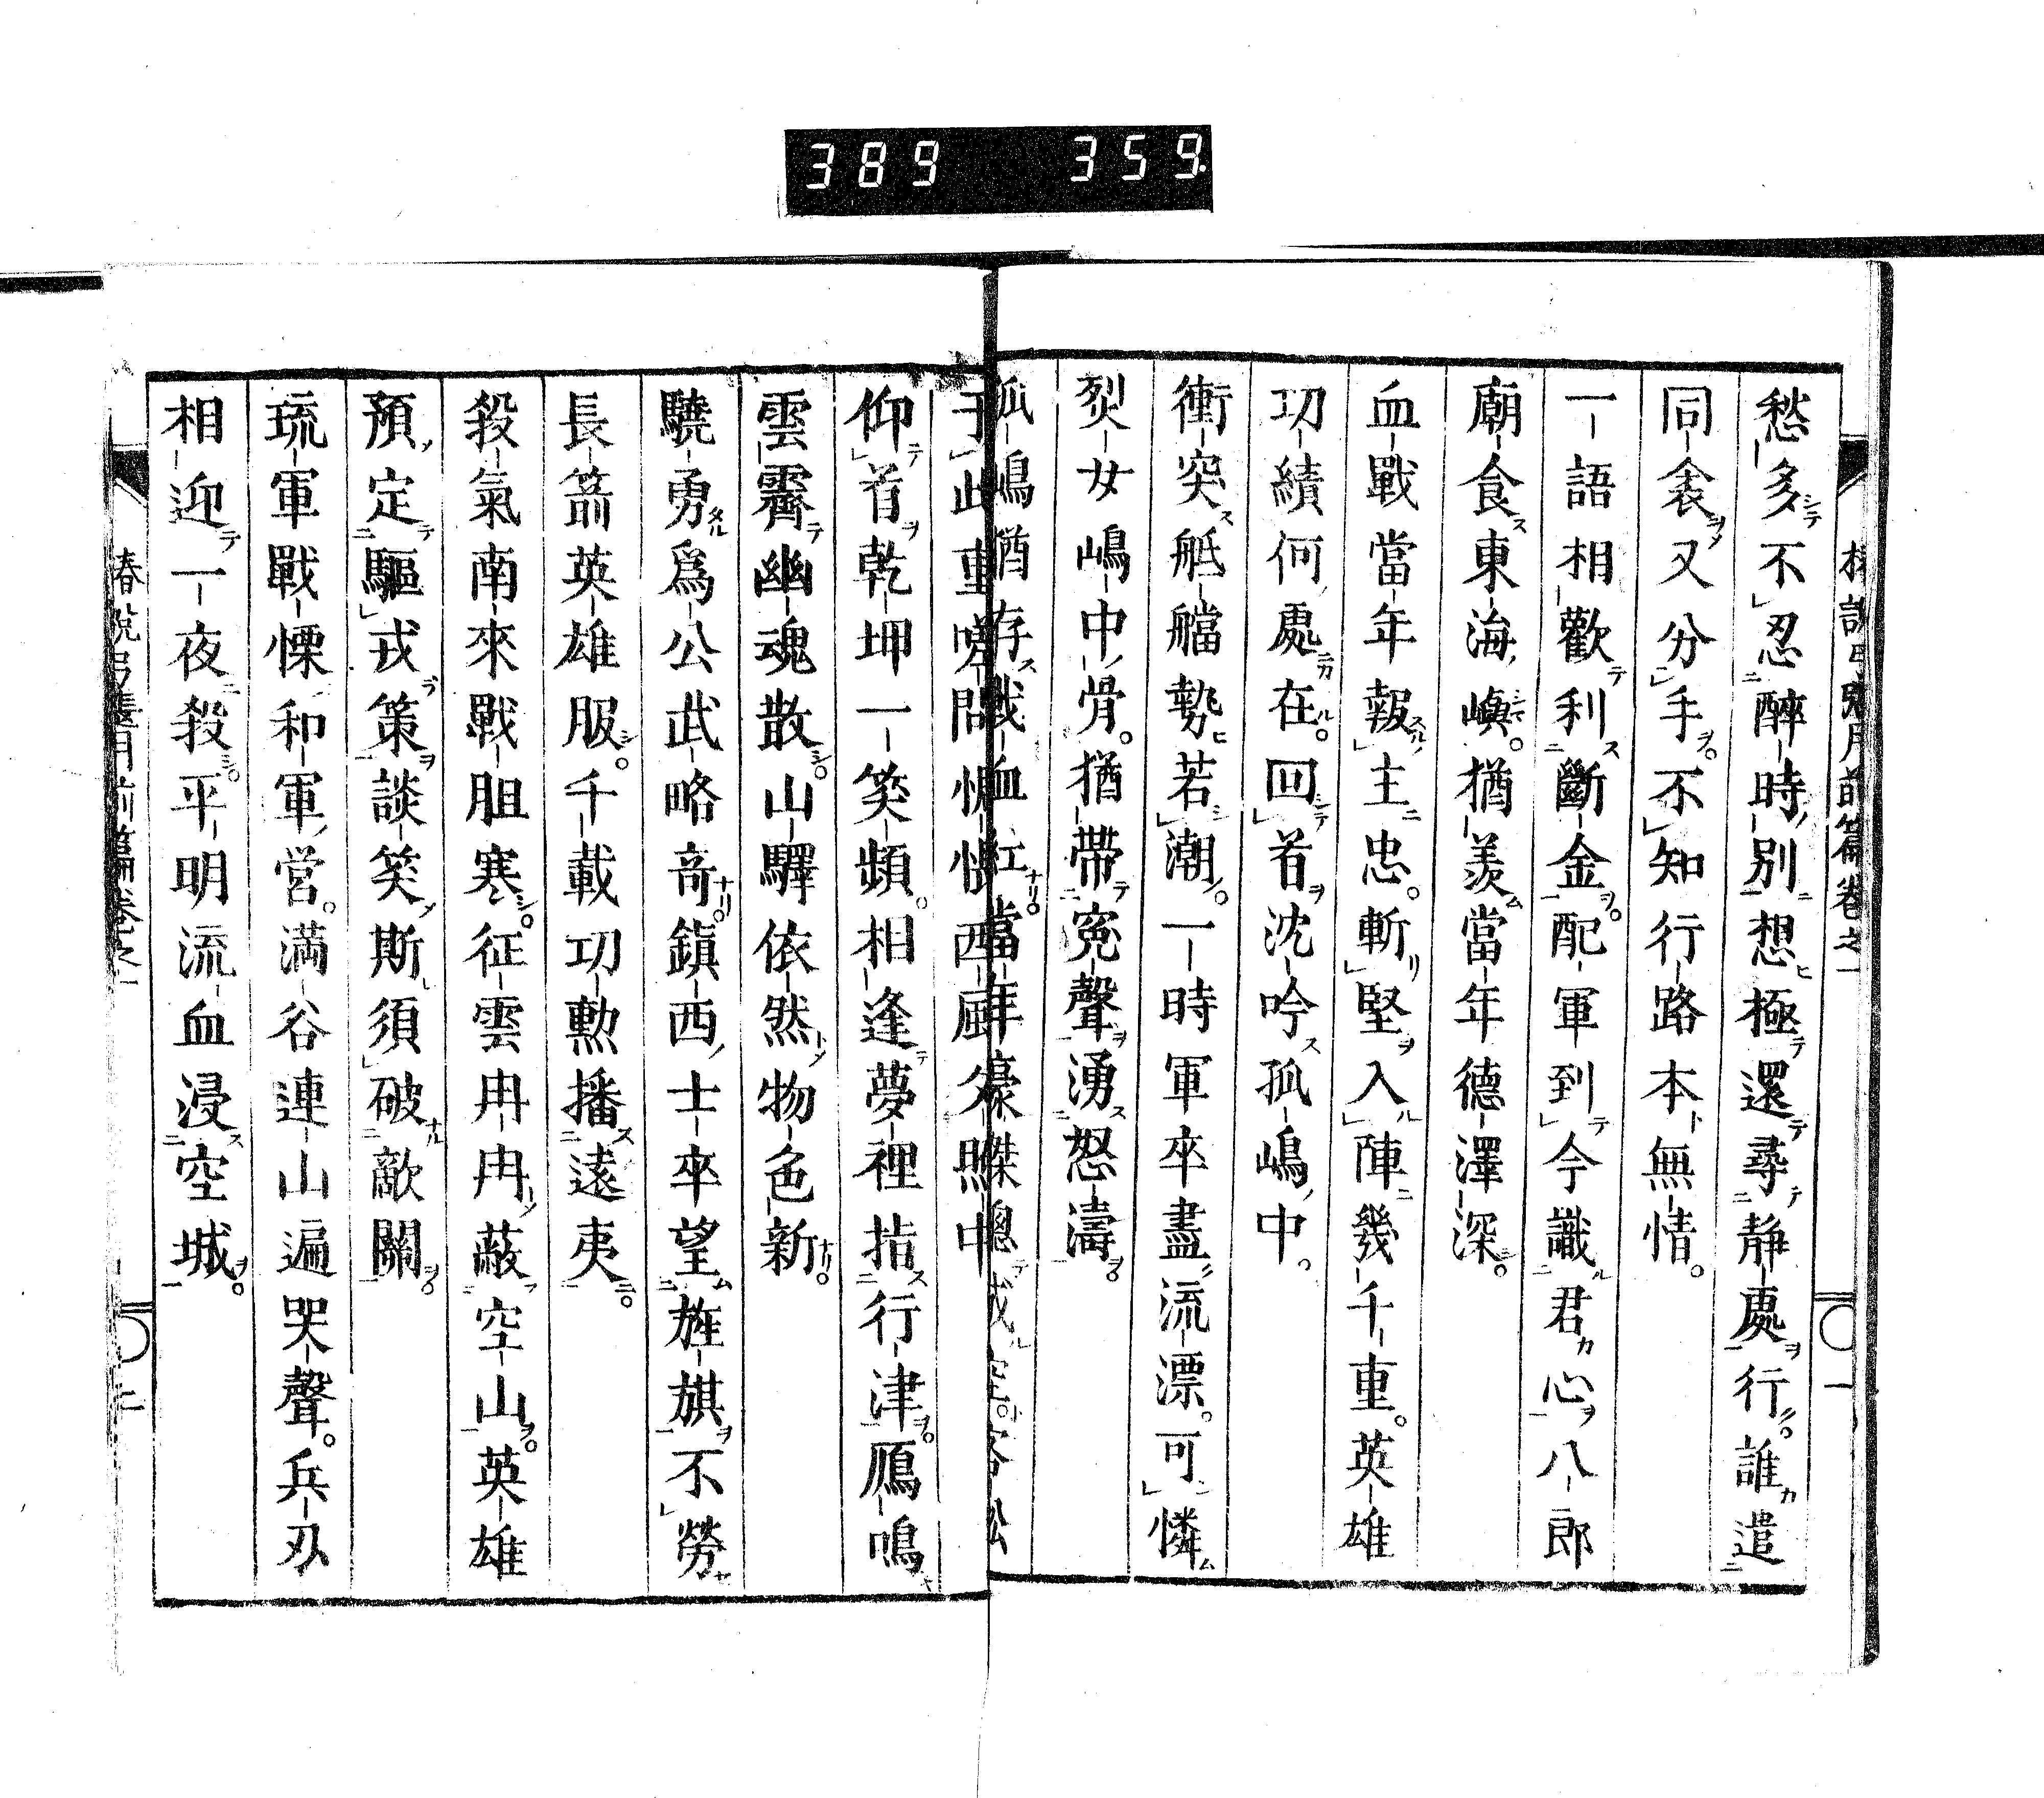 389 359
愁多不忍醉時別想極還尋静處行誰遣
同衾又分手不知行路本無情
一語相歡利斷金配軍到今識君心八郎
廟食東海嶼猶羨當年德澤深
血戰當年報主忠斬堅入陣幾千重英雄
功績何處在回首沈吟孤嶋中
衝突舩艡勢若潮一時軍卒盡流漂可憐
烈女嶋中骨猶帶寃聲湧怒濤
孤嶋猶存戰血紅當年豪傑總成空
于此重嗟問悵悵西厨父照中
仰首乾坤一笑頻相逢夢裡指行津鴈鳴
雲霽幽魂散山驛依然物色新
驍勇爲公武略竒鎮西士卒望旌旗不勞
長箭英雄服千載功勲播遠夷
殺氣南來戰胆寒征雲冉冉蔽空山英雄
預定驅戎策談笑斯須破敵關
琉軍戰慄和軍営満谷連山遍哭聲兵刄
相迎一夜殺平明流血浸空城
春説弓張月前篇卷之一
二